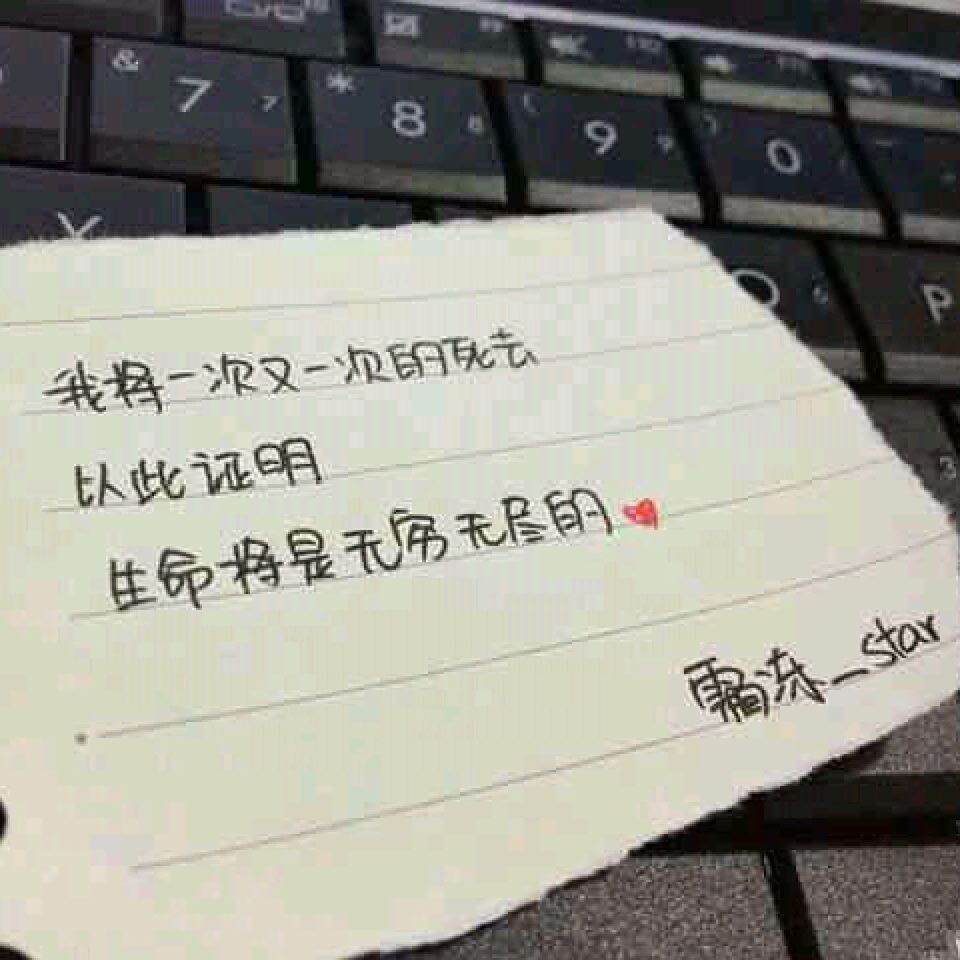 & 7 7 * 8 8 ( 9 9 ) 0
Y O 6 P
3
我将一次又一次的死去
以此证明
生命将是无穷无尽的
霜冻_star